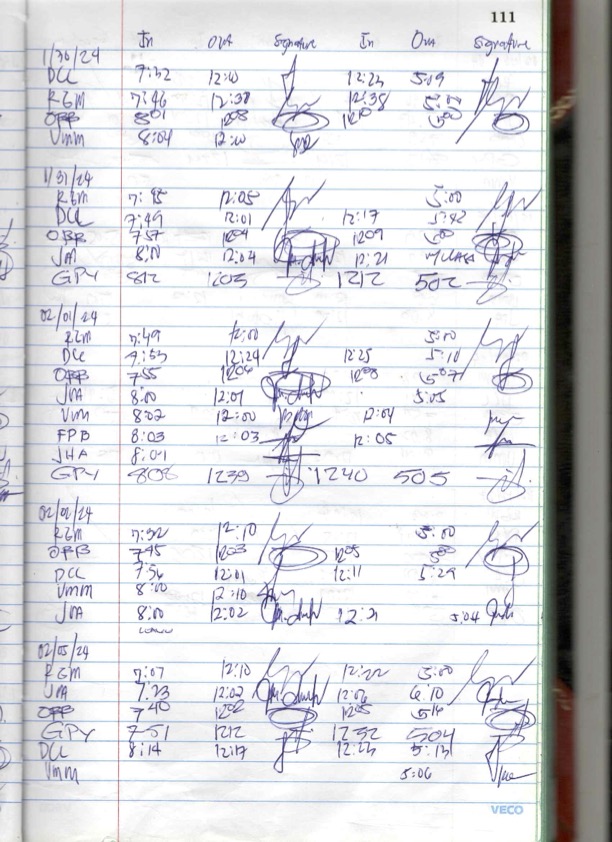 111
In Out Signature In Out Signature
1/30/24
DCC 7:32 12:10 12:23 5:09
RGM 7:46 12:38 12:38 5:00
OBB 801 1208 1210 500
VMM 8:04 12:10
1/31/24
RGM 7:45 12:05 5:00
DCC 7:49 12:01 12:17 5:42
OBB 757 1204 1209 500
JVA 8:10 12:04 12:21
GPY 812 1203 1212 502
02/01/24
RGM 7:49 12:00 5:00
DCC 7:53 12:24 12:25 5:10
OBB 755 1206 1208 507
JVA 8:00 12:01 5:05
VMM 8:02 12:00 12:04
FPB 8:03 12:03 12:05
JHA 8:01
GPY 808 1239 1240 505
02/02/24
RGM 7:32 12:10 5:00
OBB 745 1203 1205 500
DCC 7:56 12:01 12:11 5:29
VMM 8:00 12:10
JVA 8:00 12:02 12:21 5:04
02/05/24
RGM 7:07 12:10 12:22 5:00
JVA 7:23 12:02 12:06 6:10
OBB 740 1202 1205 514
GPY 751 1212 1232 504
DCC 8:14 12:17 12:23 5:13
VMM 5:06
VECO